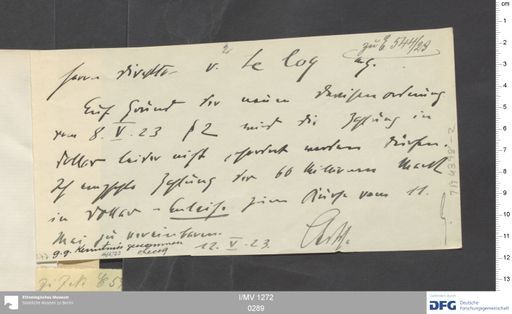 zu E 544/23
Herrn Direktor v. Le Coq erg.
Auf Grund der neuen Devisenordnung
vom 8. V. 23 § 2 wird die Zahlung in
Dollar leider nicht gefordert werden dürfen.
Ich empfehle Zahlung der 60 Millionen Mark
in Dollar-Anleihe zum Kurse vom 11.
Mai zu vereinbaren.
g.g. Kenntnis genommen
12. V. 23
I/MV 1272
0289
Ethnologisches Museum
Staatliche Museen zu Berlin
DFG Deutsche
Forschungsgemeinschaft